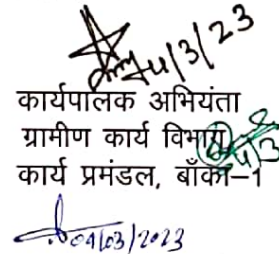 4/3/23
कार्यपालक अभियंता
ग्रामीण कार्य विभाग
कार्य प्रमंडल, बाँका–1
04/03/2023